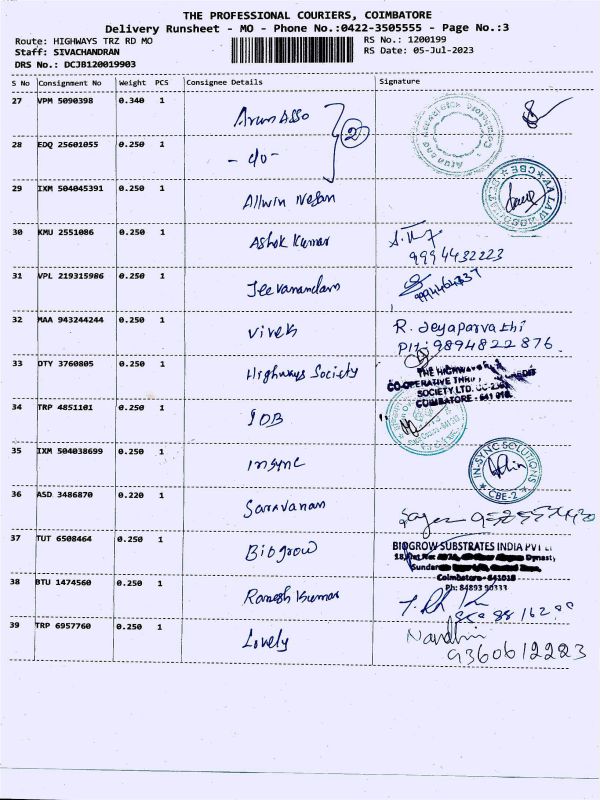 THE PROFESSIONAL COURIERS, COIMBATORE
Delivery Runsheet - MO - Phone No.:0422-3505555 - Page No.:3
Route: HIGHWAYS TRZ RD MO RS No.: 1200199
Staff: SIVACHANDRAN RS Date: 05-Jul-2023
DRS No.: DCJB120019903
S No Consignment No Weight PCS Consignee Details Signature
27 VPM 5090398 0.340 1 Arun Asso
2
28 EDQ 25601055 0.250 1 - do -
29 IXM 504045391 0.250 1 Allwin Nesan
CBE
30 KMU 2551086 0.250 1 Ashok Kumar
9994432223
31 VPL 219315986 0.250 1 Jeevanandam
32 MAA 943244244 0.250 1 Vivek R. Jeyaparvathi
PH: 9894822876
33 DTY 3760805 0.250 1 Highways Society
THE HIGHWAYS
CO-OPERATIVE THRIFT CREDIT
SOCIETY LTD.
COIMBATORE - 641 018.
34 TRP 4851101 0.250 1 IOB
35 IXM 504038699 0.250 1 Insync
IN-SYNC SOLUTIONS
CBE-2
36 ASD 3486870 0.220 1 Saravanan
37 TUT 6508464 0.250 1 Biogrow
BIOGROW SUBSTRATES INDIA PVT
Dynast,
Coimbatore - 641018
Ph: 84893 90333
38 BTU 1474560 0.250 1 Ranesh Kumar
39 TRP 6957760 0.250 1 Lovely Nandhini
9360612223